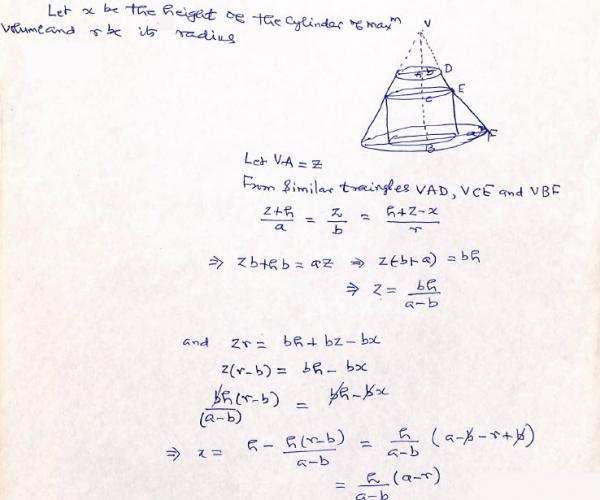 Let x be the height of the cylinder of max^m
volume and r be its radius
V
A b D
E
C
a F
B
Let VA = z
From similar traingles VAD, VCE and VBF
(z+h)/a = z/b = (h+z-x)/r
⇒ zb+hb = az ⇒ z(-b+a) = bh
⇒ z = bh/(a-b)
and zr = bh + bz - bx
z(r-b) = bh - bx
bh(r-b)/(a-b) = bh - bx
⇒ x = h - h(r-b)/(a-b) = h/(a-b) (a-b-r+b)
= h/(a-b) (a-r)